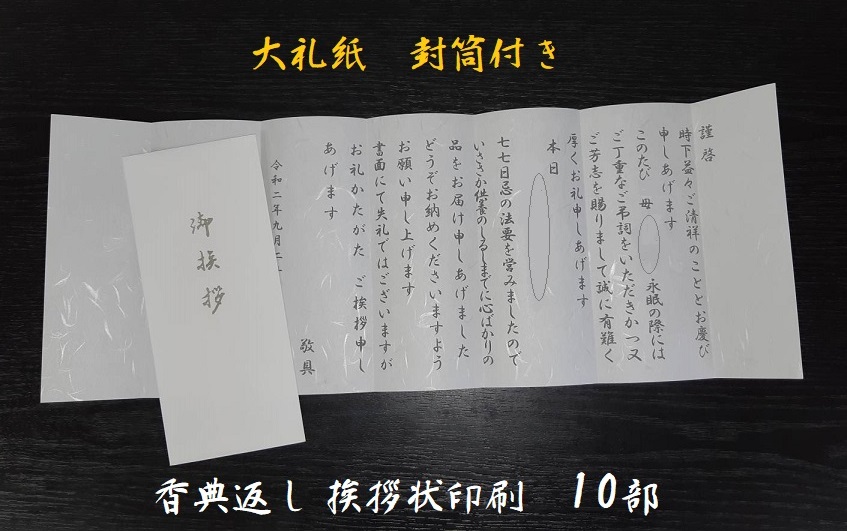 大礼紙　封筒付き
謹啓
時下益々ご清祥のこととお慶び
申しあげます
このたび　母　永眠の際には
ご丁重なご弔詞をいただきかつ又
ご芳志を賜りまして誠に有難く
厚くお礼申しあげます
本日
七七日忌の法要を営みましたので
いささか供養のしるしまでに心ばかりの
品をお届け申しあげました
どうぞお納めくださいますよう
お願い申し上げます
書面にて失礼ではございますが
お礼かたがた　ご挨拶申し
あげます
敬具
令和二年九月二
御挨拶
香典返し 挨拶状印刷　10部